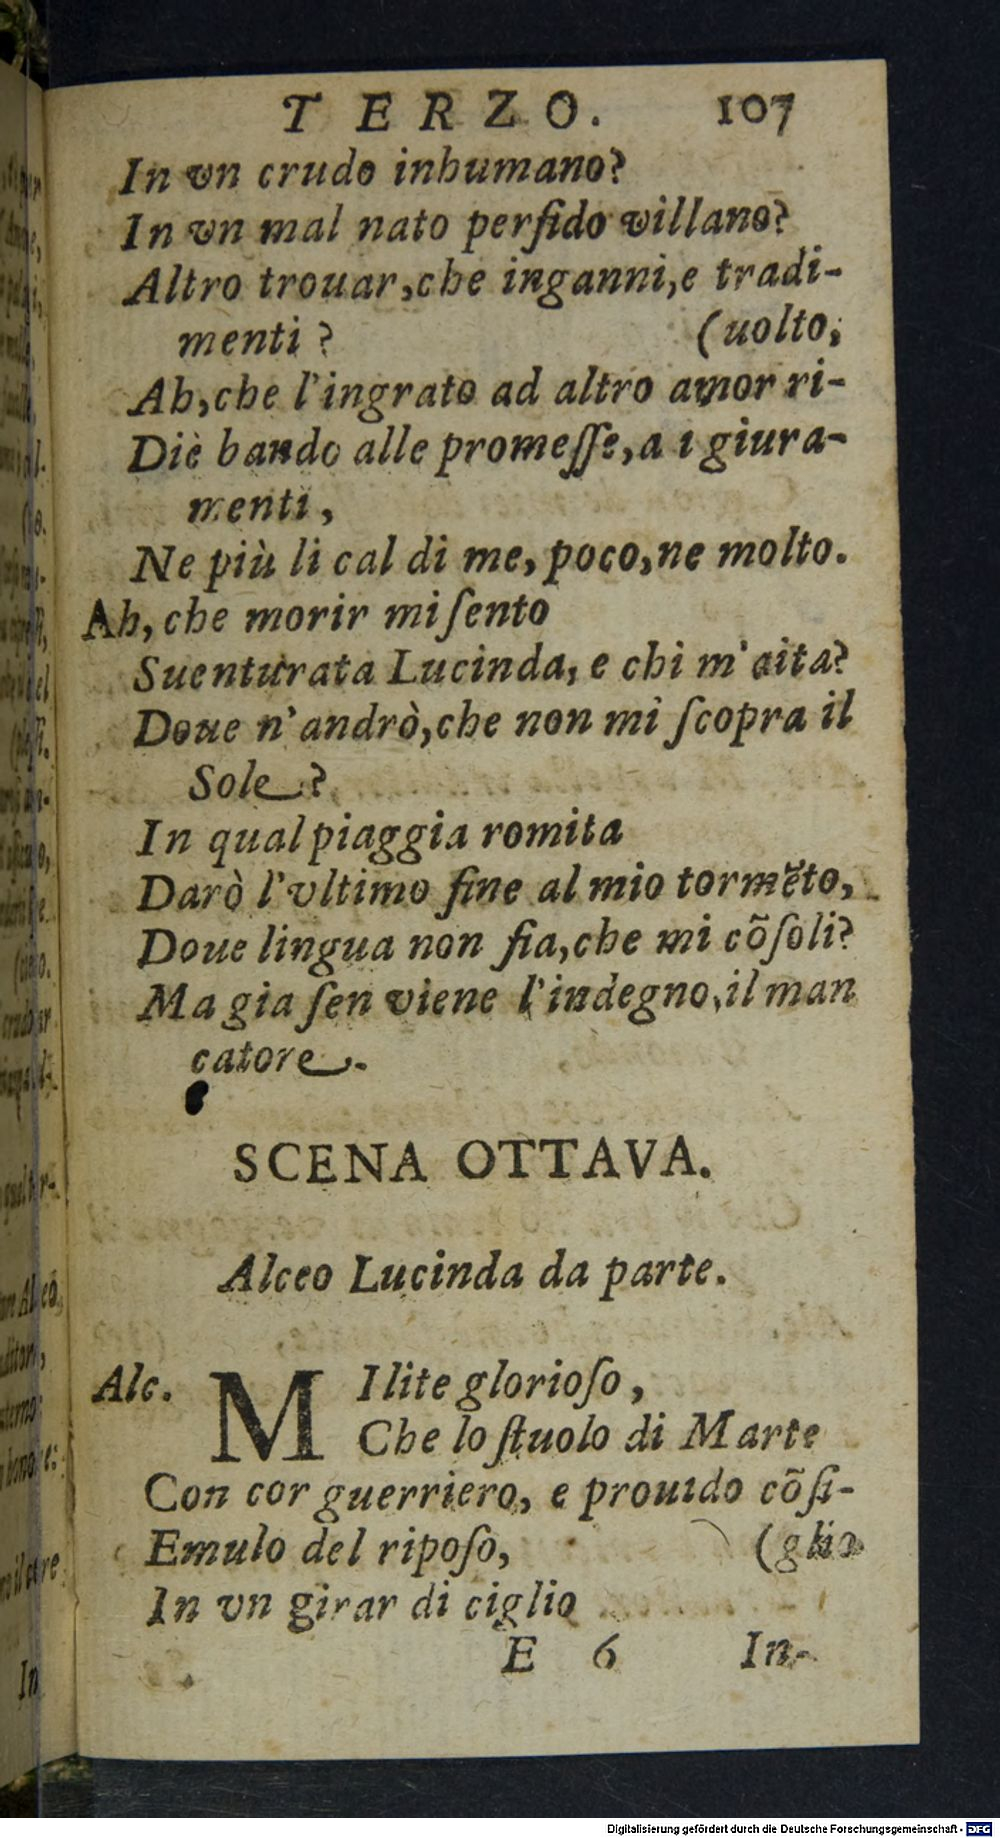 TERZO. 107
In vn crudo inhumano?
In vn mal nato perfido villano?
Altro trouar, che inganni, e tradi-
menti? (uolto;
Ah, che l'ingrato ad altro amor ri-
Diè bando alle promeſſe, a i giura-
menti,
Ne più li cal di me, poco, ne molto.
Ah, che morir mi ſento
Suenturata Lucinda, e chi m'aita?
Doue n'andrò, che non mi ſcopra il
Sole?
In qual piaggia romita
Darò l'vltimo fine al mio tormẽto,
Doue lingua non fia, che mi cõſoli?
Ma gia ſen viene l'indegno, il man
catore.
SCENA OTTAVA.
Alceo Lucinda da parte.
Alc. MIlite glorioſo,
Che lo ſtuolo di Marte
Con cor guerriero, e prouido cõſi-
Emulo del ripoſo, (glio
In vn girar di ciglio
E 6 In-
Digitalisierung gefördert durch die Deutsche Forschungsgemeinschaft - DFG